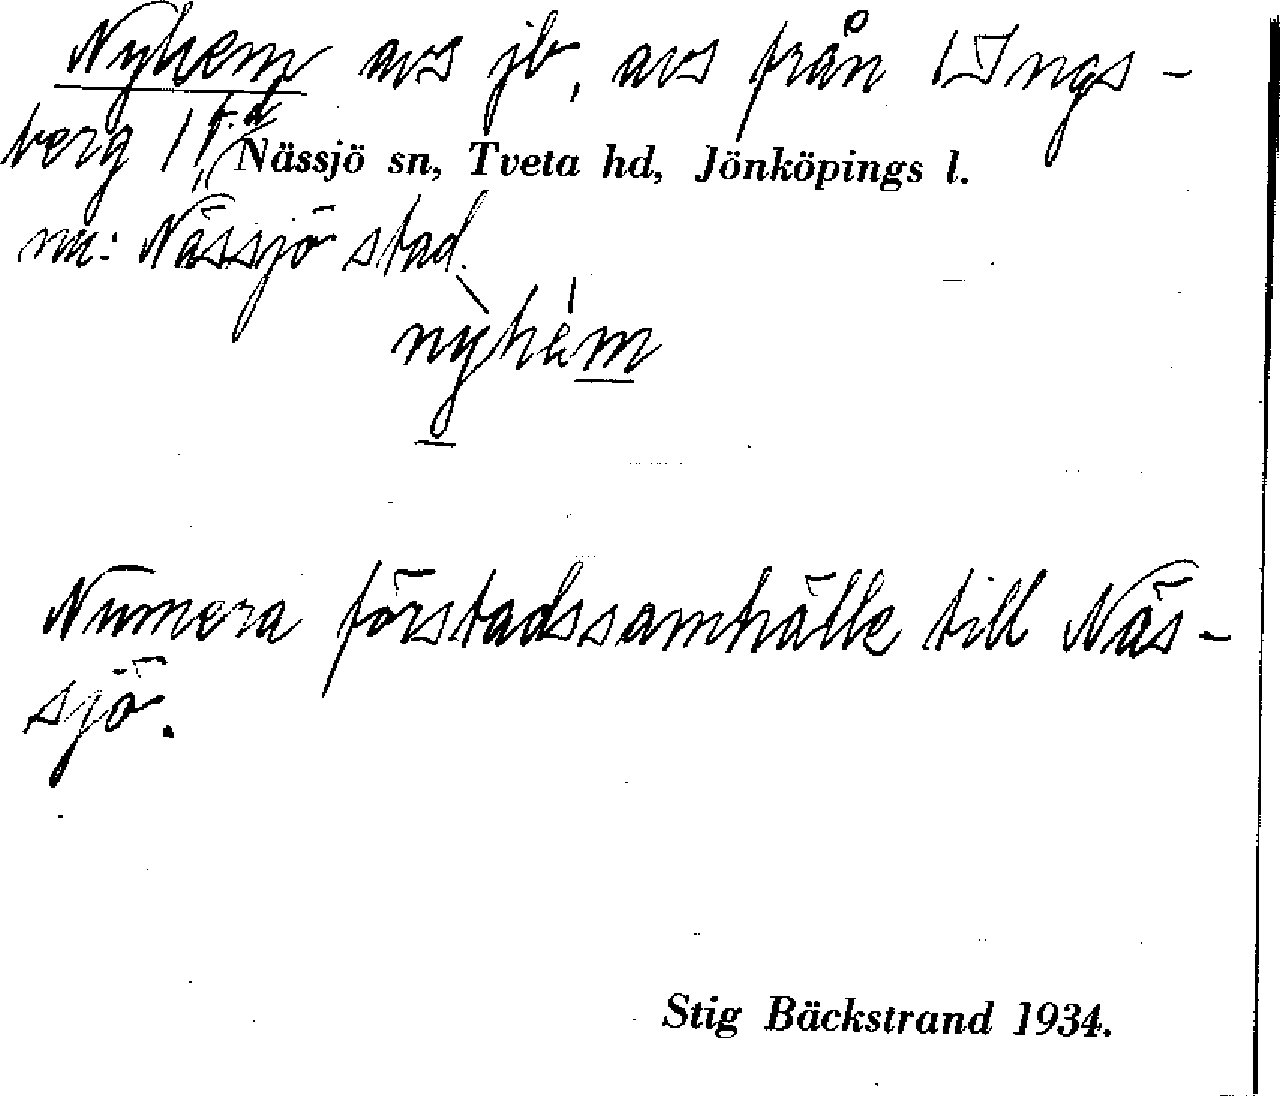 Nyhem avs jb, avs från 1 Ings-
berg 1 f.d.
Nässjö sn, Tveta hd, Jönköpings l.
nu: Nässjö stad.
nỳhém
Numera förstadssamhälle till Näs-
sjö.
Stig Bäckstrand 1934.